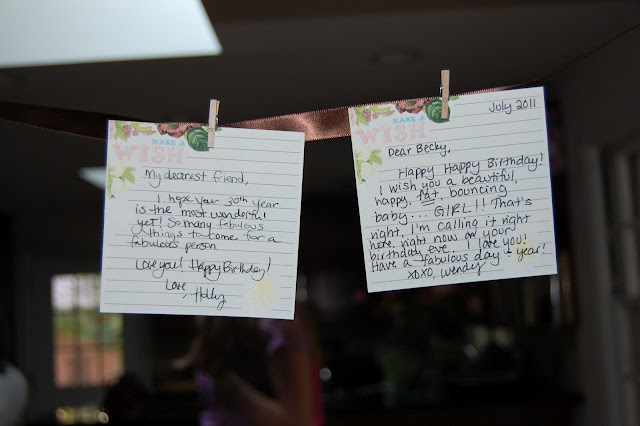 MAKE A
WISH
My dearest friend,
I hope your 30th year
is the most wonderful
yet! So many fabulous
things to come for a
fabulous person
Love you! Happy Birthday!
Love,
Holly
MAKE A
WISH
July 2011
Dear Becky,
Happy Happy Birthday!
I wish you a beautiful,
happy, fat, bouncing
baby... GIRL!! That's
right, I'm calling it right
here, right now on your
birthday eve. I love you!
Have a fabulous day + year!
XOXO, Wendy